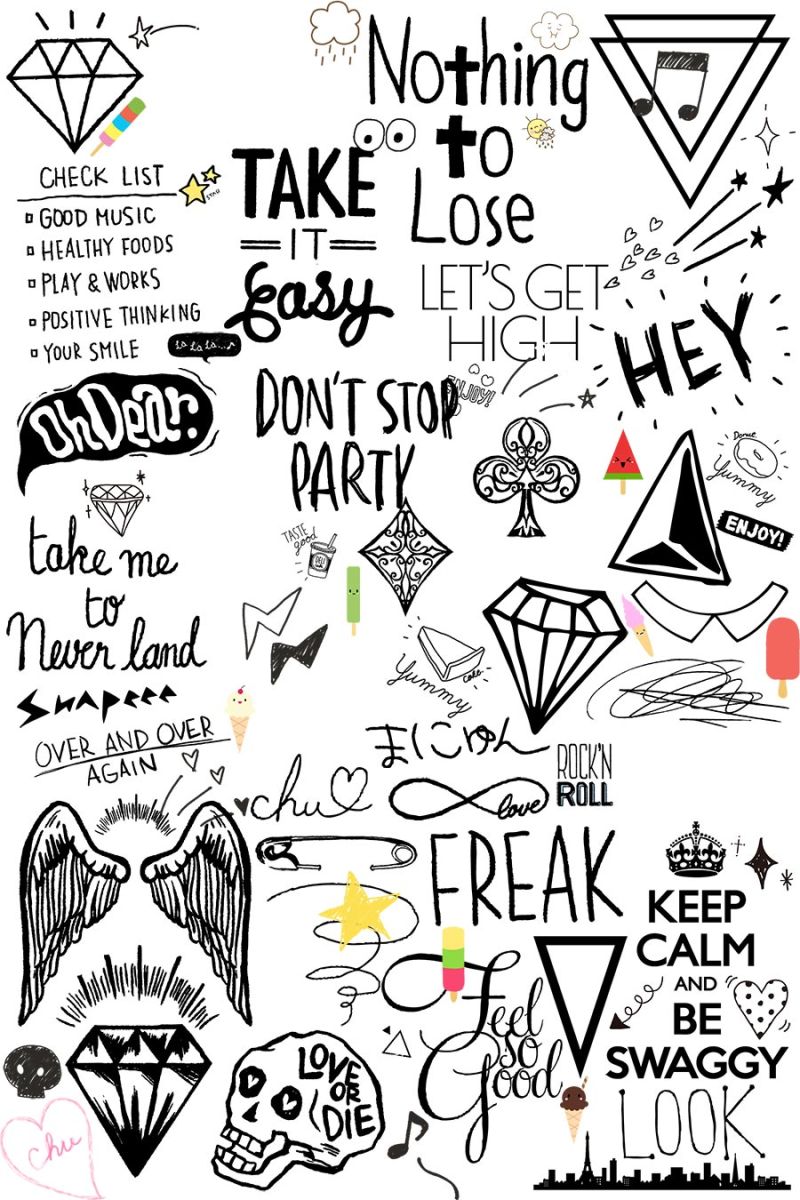 Nothing
to
Lose
CHECK LIST
GOOD MUSIC
HEALTHY FOODS
PLAY & WORKS
POSITIVE THINKING
YOUR SMILE
la la la...♪
STAR
TAKE
IT
Easy
LET'S GET
HIGH
HEY
Oh Dear.
DON'T STOP
PARTY
ENJOY!
Donut
Yummy
ENJOY!
take me
to
Never land
TASTE
good
Yummy
cake
OVER AND OVER
AGAIN
まにゅん
ROCK'N
ROLL
chu♡
love
FREAK
KEEP
CALM
AND
BE
SWAGGY
Feel
so
Good
LOVE
OR
DIE
LOOK
chu